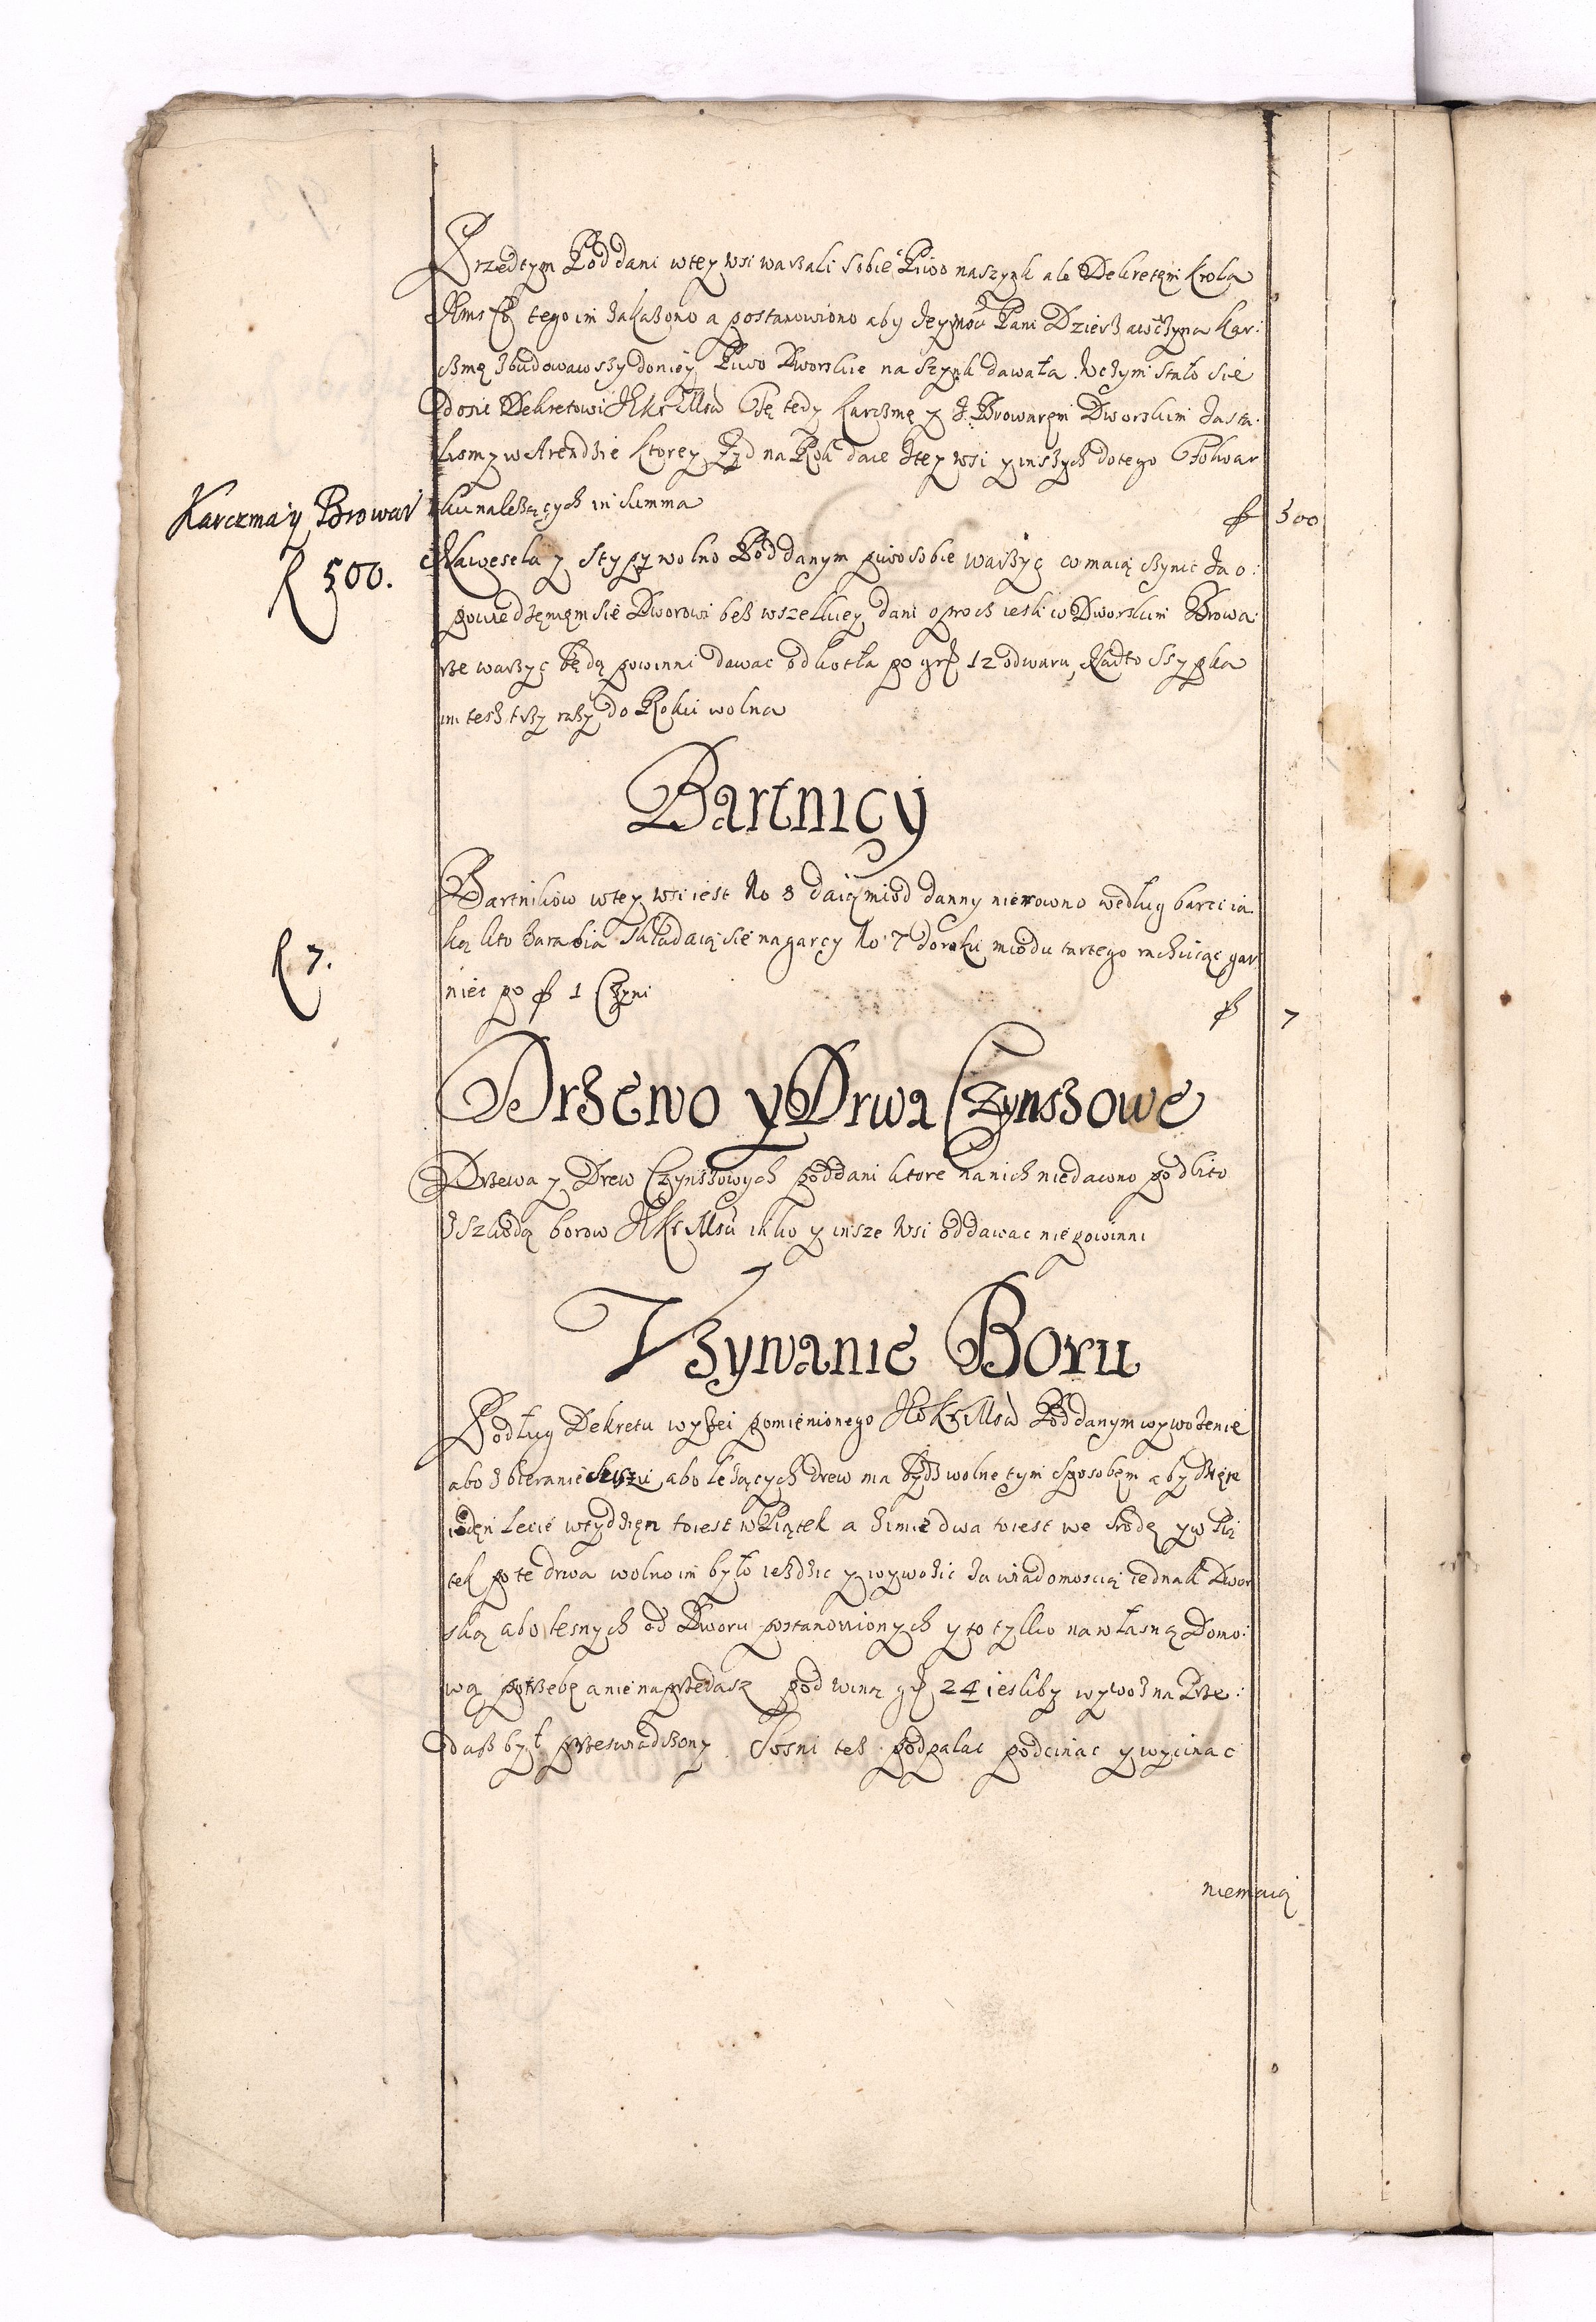 Przedtym Poddani w tey wsi warzali sobie Piwo na szynk ale Dekretem Krola
Jms tego im zakazono a postanowiono aby Jeymsc Pani Dzierzawczyna kar:
czmę zbudowawszy do niey Piwo Dworskie na szynk dawała. w czym stało się
dosic Dekretowi JKr Msci Tę tedy karczmę y z Browarem Dworskim zasta:
lismy w Arendzie ktorey Zyd na Rok daie z tey wsi y inszych do tego Folwar
ku nalezących in summa
f 500
Karczma y Browar
f 500.
Na wesela y Stypy wolno Poddanym piwo sobie warzyc co maią czynic za o:
powiedzeniem się Dworowi bez wszelkiey dani oproch iesli w Dworskim Browa:
rze warzyc będą powinni dawac od kotła po gr 12 od waru, Nadto Ssypka
im tesz trzy razy do Roku wolna
Bartnicy
Bartnikow w tey wsi iest No 8 daią miod danny nierowno według barci ia:
ką kto zarabia składaią się na garcy No 7 do roku miodu tartego rachuiąc gar
niec po f 1 Czyni
f 7
f 7.
Drzewo y Drwa Czynszowe
Drzewa y Drew Czynszowych poddani ktore na nich niedawno podbito
z szkodą borow JKr Msci iako y insze wsi oddawac nie powinni
Vzywanie Boru
Podług Dekretu wyszei pomienionego JKr Msci Poddanym wywozenie
abo zbieranie suszu abo lezących drew ma bydz wolne tym sposobem aby dzien
ieden Lecie w tydzien to iest w Piątek a zimie dwa to iest we srodę y w Pią
tek po te drwa wolno im było iezdzic y wywozic za wiadomoscią iednak Dwor
ską abo lesnych od Dworu postanowionych y to tylko na własną Domo:
wą potrzebę a nie na przedasz pod winą gr 24 iesliby wywoz na Prze:
dasz był przeswiadczony Sosni tez podpalac podcinac y wycinac
niemaią